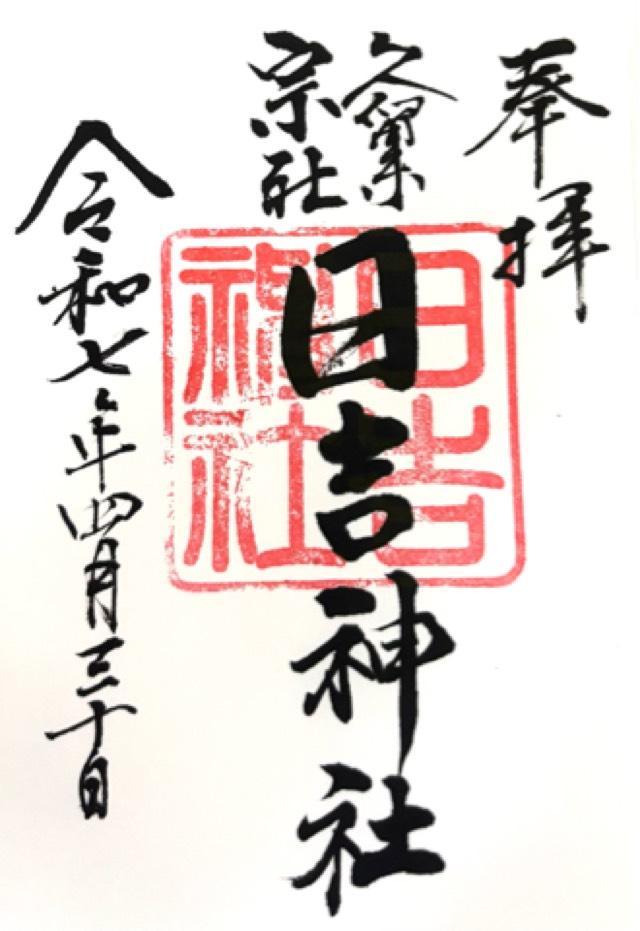 奉拝
久留米
宗社
日吉神社
日吉
神社
令和七年四月三十日